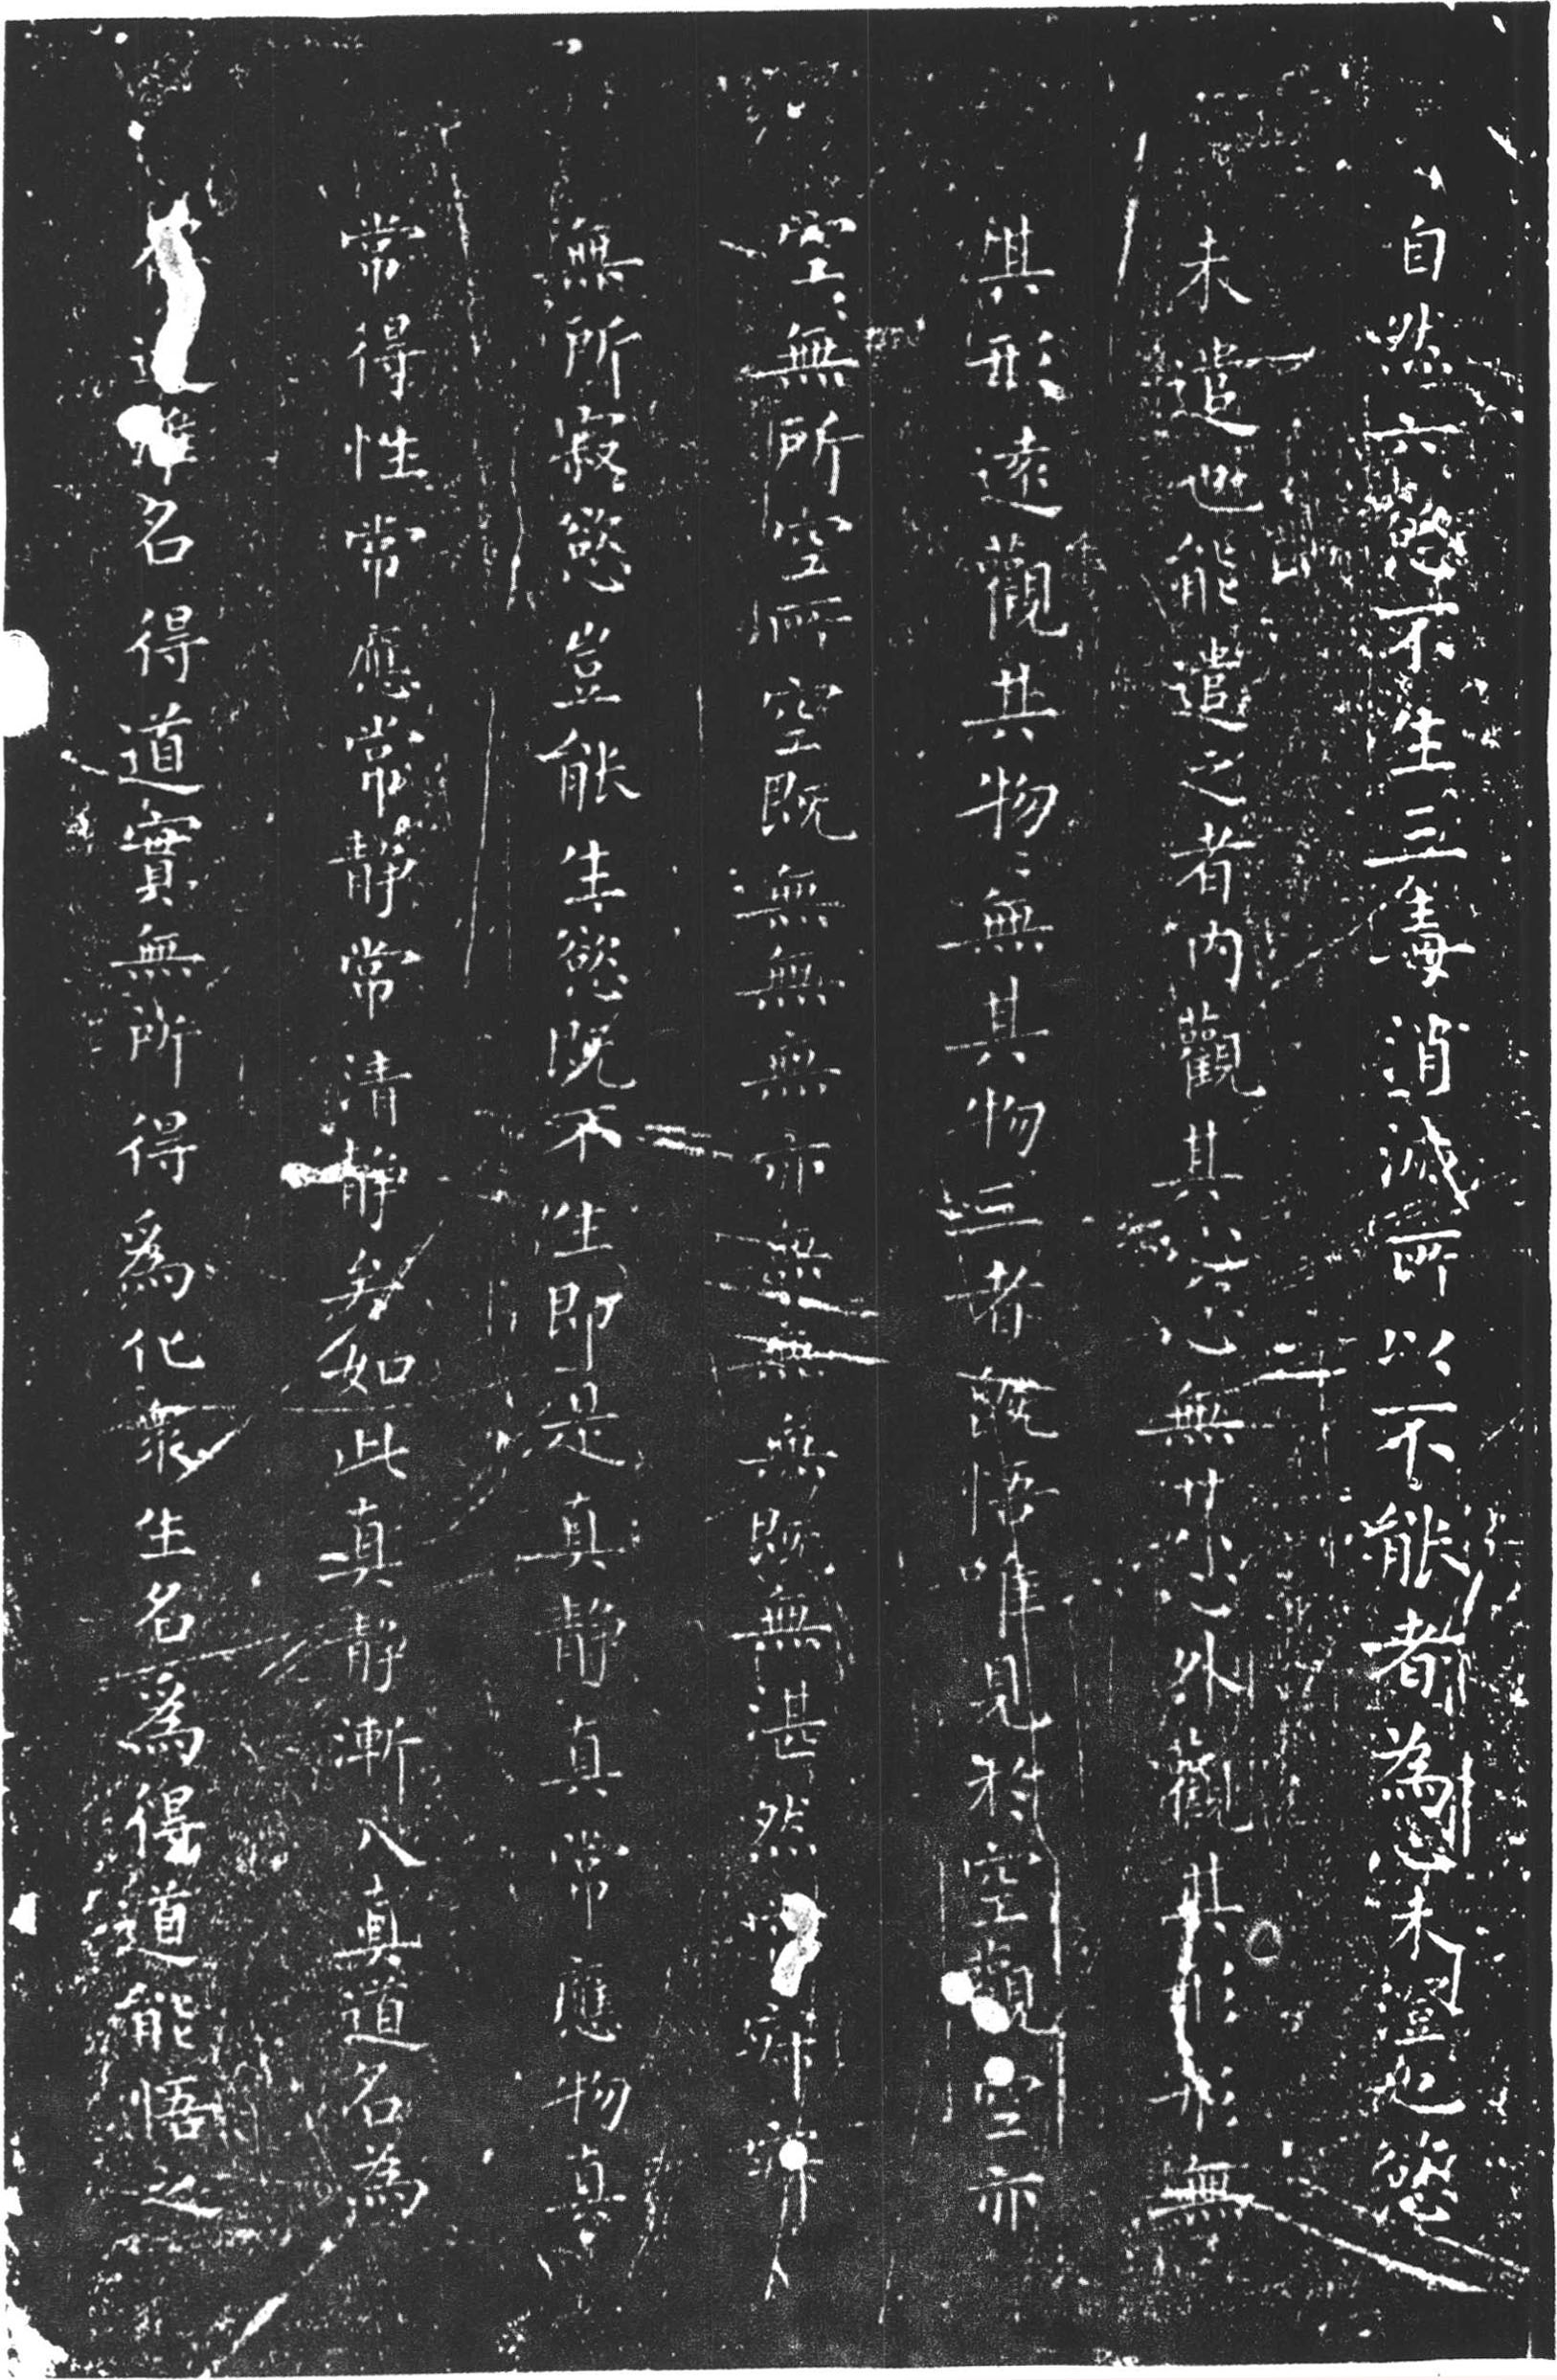 自然六慾不生三毒消滅所以不能者為心未澄也慾
未遣也能遣之者内觀其心心無其心外觀其形形無
其形遠觀其物〻無其物三者既悟唯見於空觀空亦
空〻無所空所空既無無無亦無無無既無湛然常寂寂
無所寂慾豈能生慾既不生即是真静真常應物真
常得性常應常静常清静矣如此真静漸入真道名為
得道雖名得道實無所得為化衆生名為得道能悟之